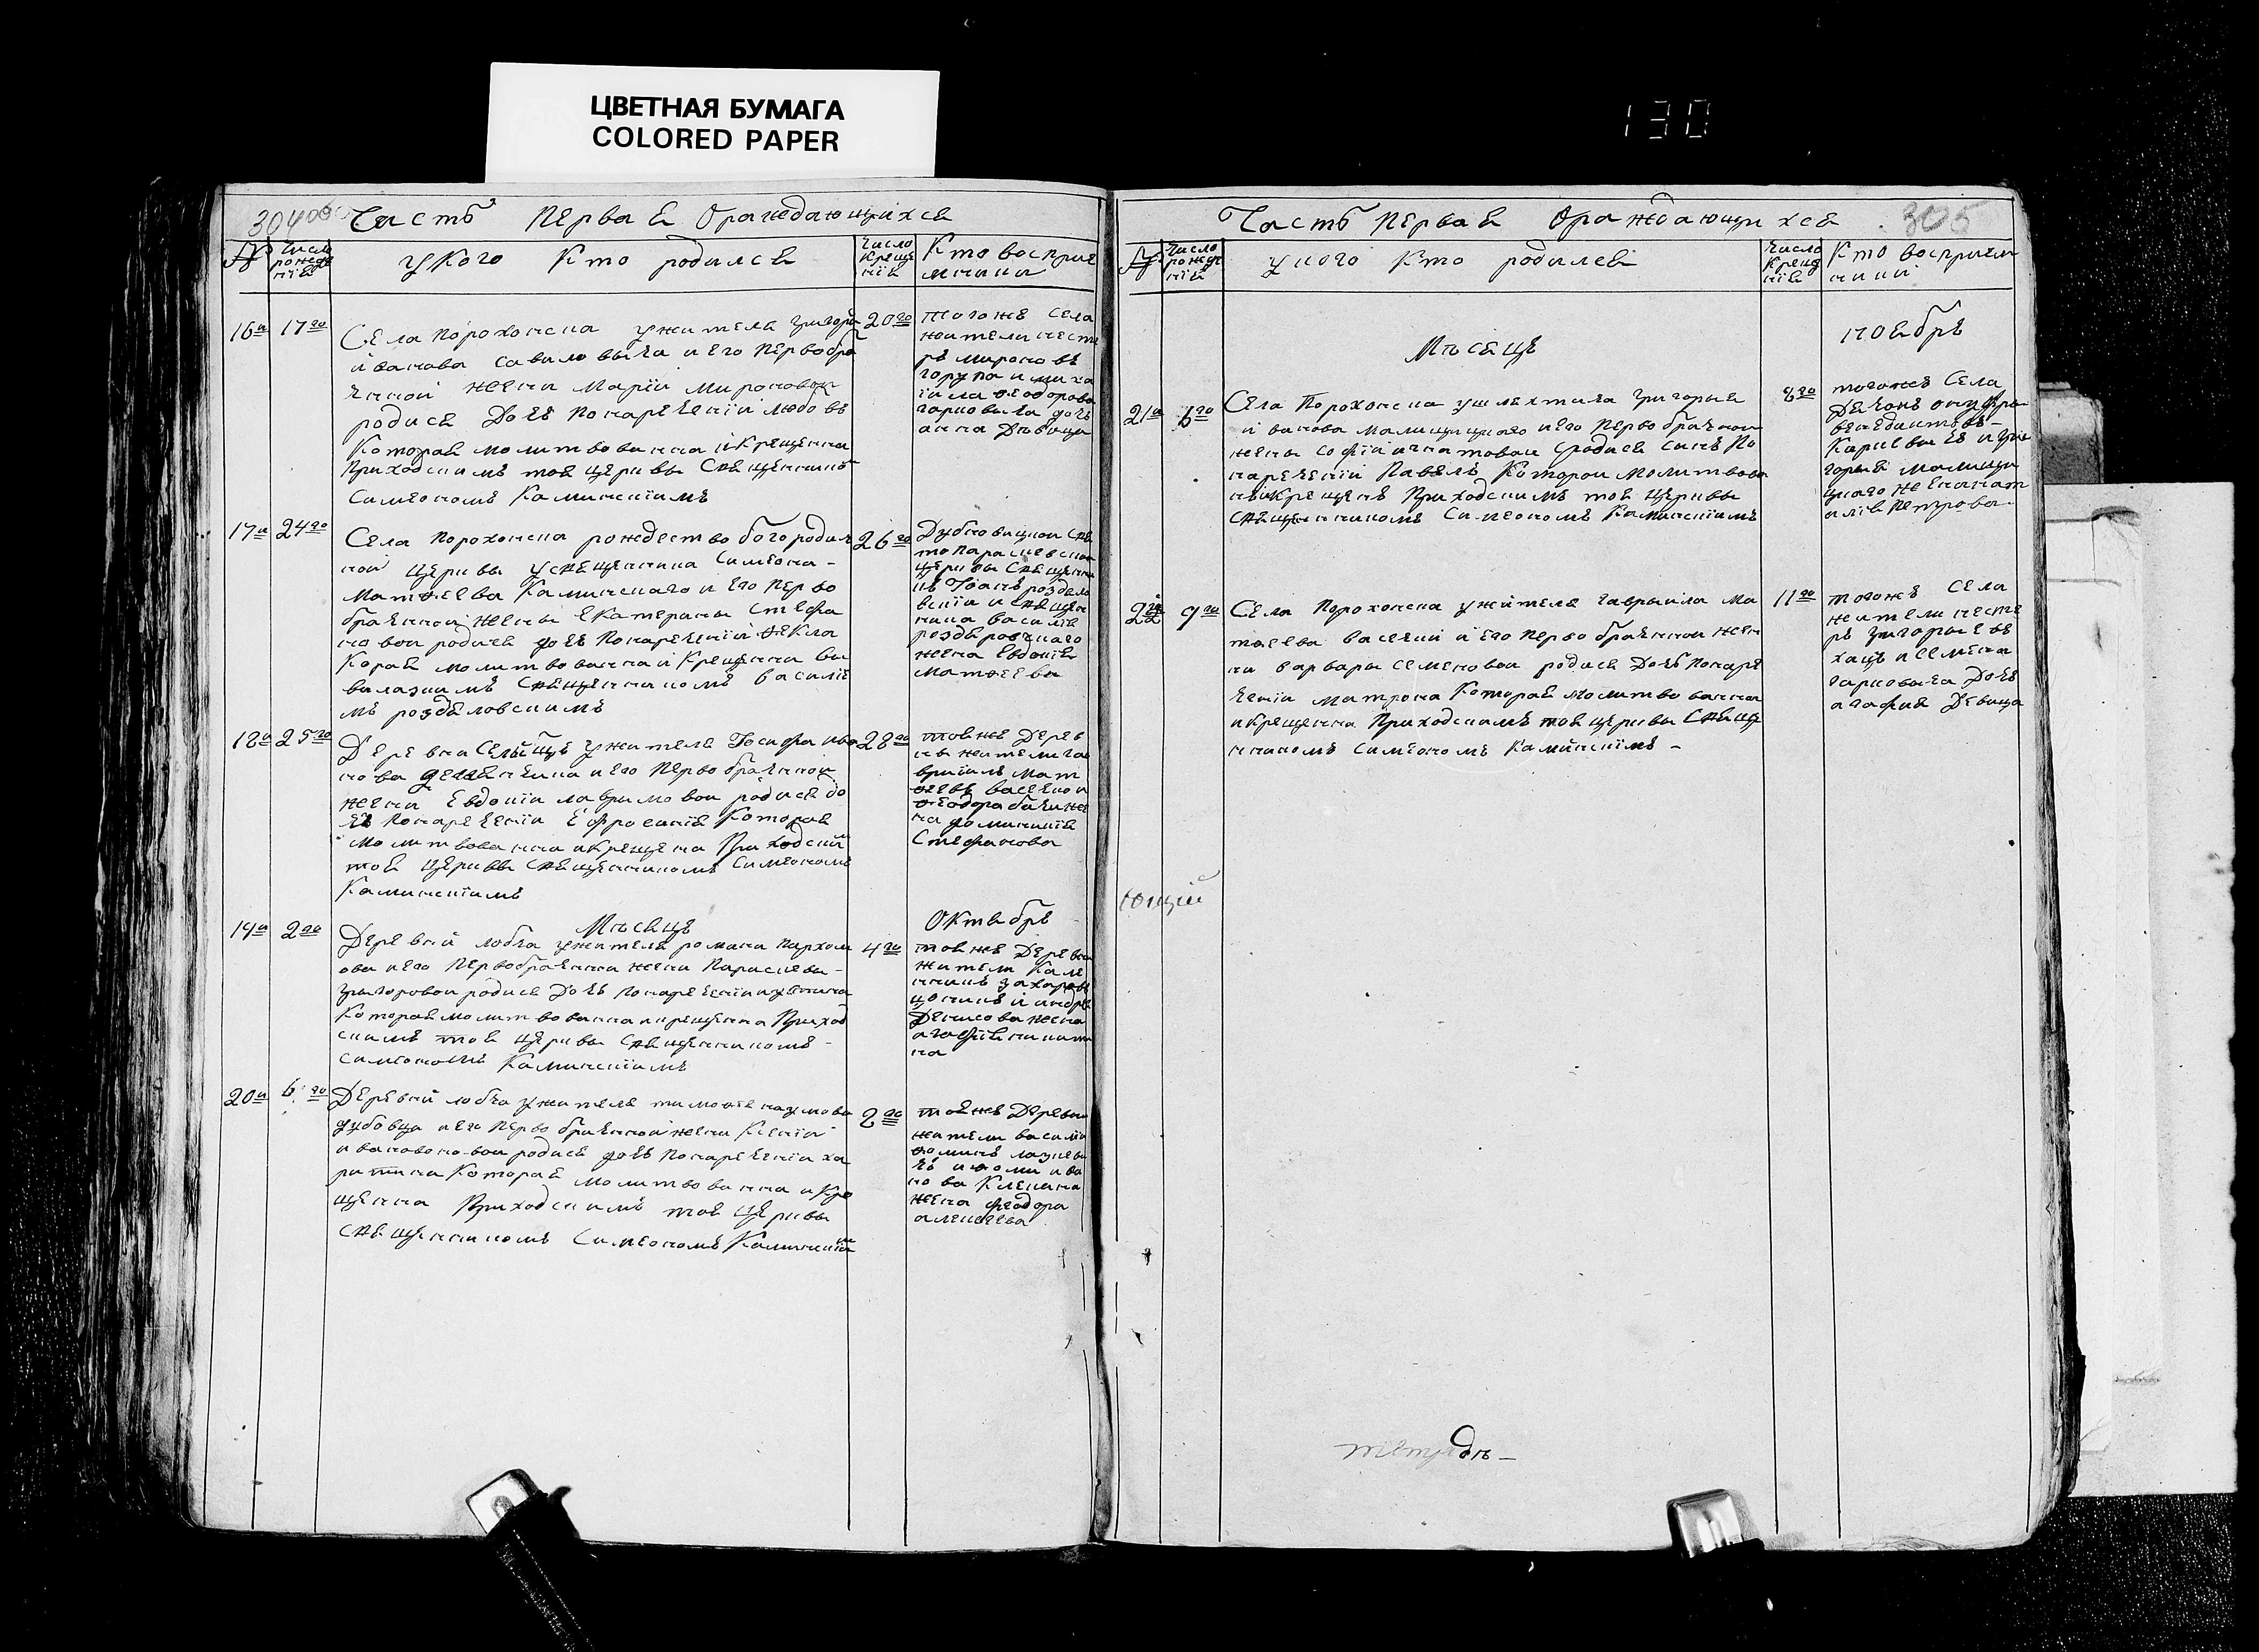 ЦВЕТНАЯ БУМАГА
COLORED PAPER
130
304
Часть Первая Ораждающихся
№
Число рождения
укого Кто родился
Число Крещения
Кто восприемники
16а 17го
Села Порохонска ужителя григория
иванова савиловыча и его первобра
чнной жены Марїи Мироновой
родися Дочъ Понаречении любовъ
Которая молитвованна и Крещенна
Приходскимъ тоя церквы Священникомъ
Симеономъ Каминскїимъ
20го
тогожъ Села
жители несте
ръ мироновъ
михаила Феодорова
дочъ
анна Дѣвица
17а 24го
Села Порохонска рождество богородич
ной Церквы Священника Симеона
Матѳеева Каминскаго и его Перво
брачнной жены Екатерины Стефа
новои родися дочъ Понаречении Ѳекла
Корая молитвованна и Крещенна Вы
валазкимъ Священникомъ василїе
мъ розделовскимъ
26го
Дубновицкой Свя
топараскевской
церквы Священни
къ Иоанъ роздяло
вскїи и Священ
ника василїя
жена Евдокїя
Матѳеева
18а 25го
Деревни Селищъ ужителя Иосифа ива
нова и его Первобрачнной
жены Евдокїи лавримовои родися до
чъ Понаречении Ефросинїя Которая
Молитвованна и Крещена Приходским
тоя Церквы Священникомъ Симеономъ
Каминскїимъ
28го
тояжъ Дерев
нѣ жители га
врїилъ мат
ѳеевъ васечко и
ѳеодора
жена доминикїя
Стефанова
Мѣсяцъ Октябрь
19а 2го
Деревни лобча ужителя романа Пархом
ова и его Первобрачнна жены Параскевы
григоровои родися Дочъ Понаречении
Которая молитвованна и крещенна Приход
скимъ тоя Церквы Священникомъ
симеономъ Каминскїимъ
4го
тояжъ Деревни
жители Кале
нникъ захаровъ
и андрея
Денисова жена
агафїя
20а 6го
Деревни лобча ужителя тимоѳея наумова
дубовца и его Первобрачнной жены Ксенїи
ивановои родися дочъ Понаречении ха
ритина Которая молитвованна и Кре
щенна Приходскимъ тоя Церквы
Священникомъ Симеономъ Каминскїим
8го
тояжъ Деревни
жители василїи
ѳоминъ
и ѳоми ива
нова
жена феодора
алексеева
Часть Первая Ораждающихся
305
№
Число рождения
укого Кто родился
Число Крещения
Кто восприемники
Мѣсяцъ ноябрь
21а 6го
Села Порохонска ушляхтича григорыя
иванова малищицкаго и его Первобрачной
жены Софїи игнатовои родися синъ По
наречении Павелъ Которои молитвова
нъ и крещенъ Приходскимъ тоя Церквы
Священникомъ Симеономъ Каминскїимъ
8го
тогожъ Села
Дячокъ онуфри
венедиктовъ
Карпевычъ и гри
горыя малищи
цкаго жена нат
алїя Петрова
22а 9го
Села Порохонска ужителя гаврыила Ма
тѳеева васечки и его Первобрачнои жен
ни варвары семеновои родися Дочъ Понаре
чении Матрона Которая молитвованна
и крещенна Приходскимъ тоя церквы Священ
никомъ Симеономъ Каминскїимъ
11го
тогожъ Села
жители несте
ръ григорыевъ
и семена
Дочъ
агафия Девица
ющїй
тетрадь